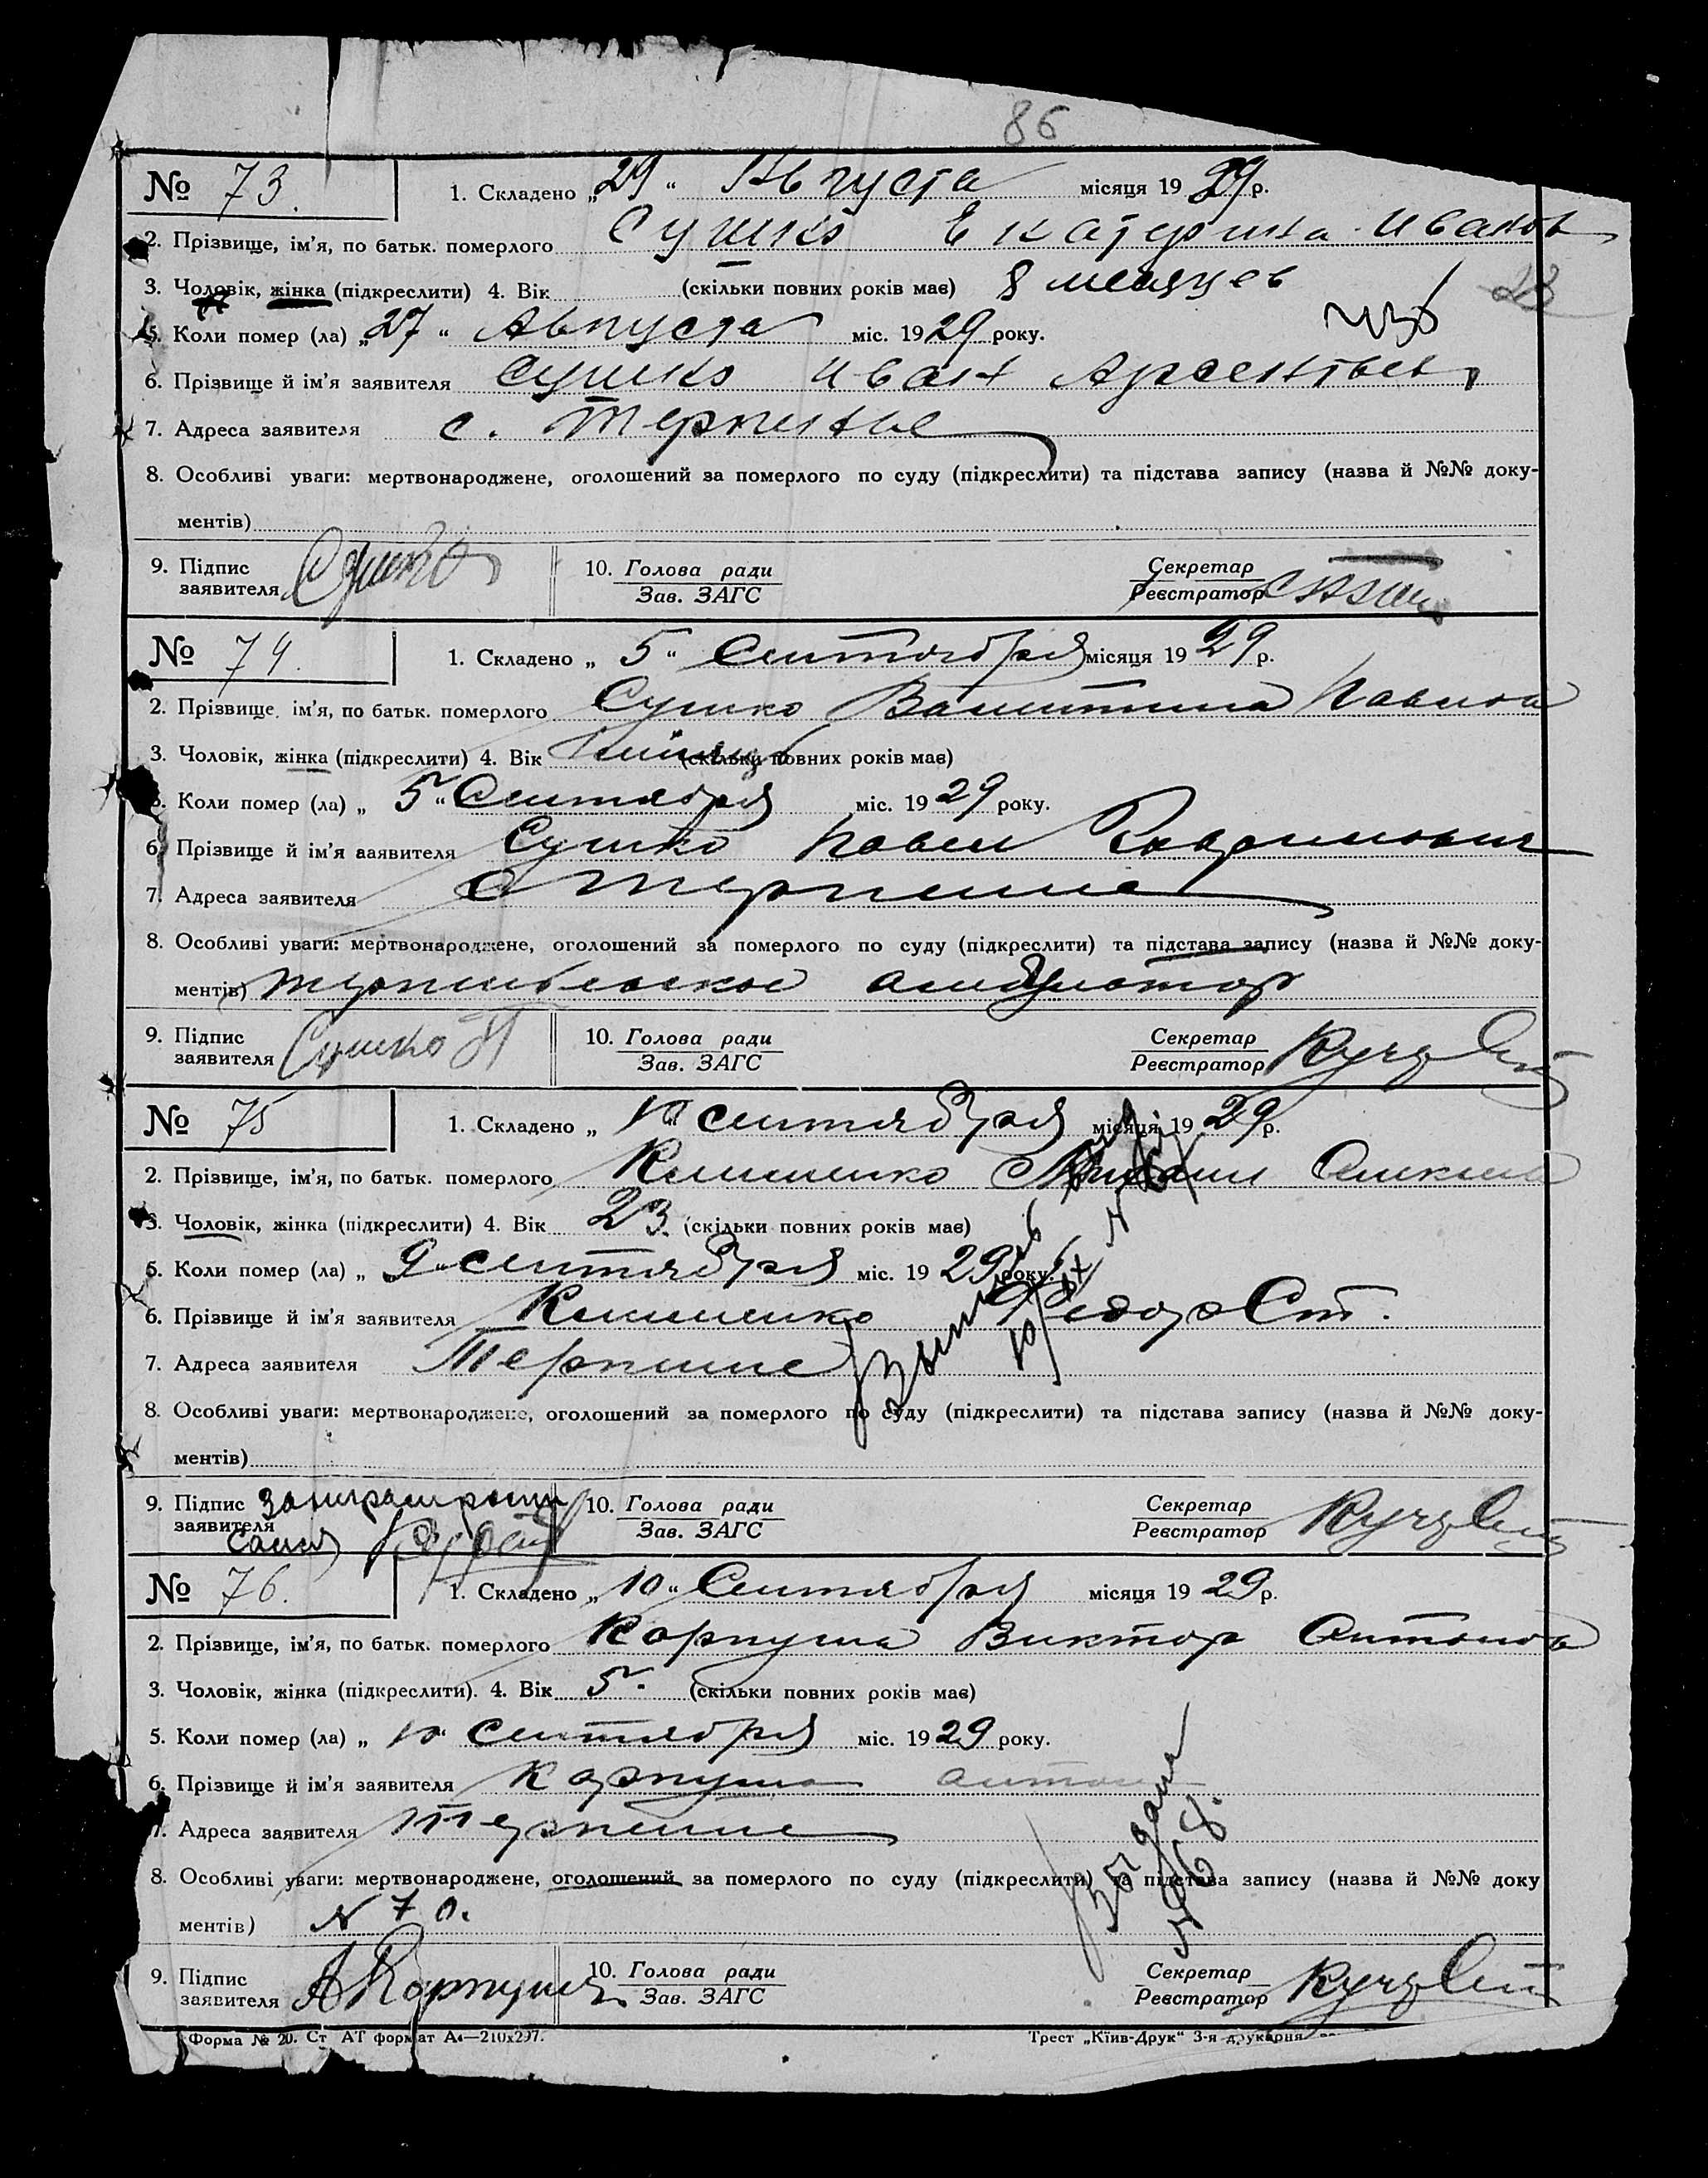 86
№ 73. 1. Складено „29“ Августа місяця 1929 р.
2. Прізвище, ім'я, по батьк. померлого Сушко Екатерина Иванов
3. Чоловік, жінка (підкреслити) 4. Вік (скільки повних років має) 8 месяцев
23
5. Коли помер (ла) „27“ Августа міс. 1929 року.
6. Прізвище й ім'я заявителя Сушко Иван Арсентьев
7. Адреса заявителя с. Терпенье
8. Особливі уваги: мертвонароджене, оголошений за померлого по суду (підкреслити) та підстава запису (назва й №№ доку-
ментів)
9. Підпис заявителя Сушко 10. Голова ради Секретар
Зав. ЗАГС Реєстратор
№ 74. 1. Складено „5“ Сентября місяця 1929 р.
2. Прізвище, ім'я, по батьк. померлого Сушко Валентина Павлов
3. Чоловік, жінка (підкреслити) 4. Вік (скільки повних років має)
5. Коли помер (ла) „5“ Сентября міс. 1929 року.
6. Прізвище й ім'я заявителя Сушко Павел
7. Адреса заявителя с Терпение
8. Особливі уваги: мертвонароджене, оголошений за померлого по суду (підкреслити) та підстава запису (назва й №№ доку-
ментів)
9. Підпис заявителя Сушко П 10. Голова ради Секретар
Зав. ЗАГС Реєстратор
№ 75 1. Складено „10“ сентября місяця 1929 р.
2. Прізвище, ім'я, по батьк. померлого Клименко
3. Чоловік, жінка (підкреслити) 4. Вік 23. (скільки повних років має)
5. Коли помер (ла) „9“ сентября міс. 1929 року.
6. Прізвище й ім'я заявителя Клименко Федор Ст.
7. Адреса заявителя Терпение
8. Особливі уваги: мертвонароджене, оголошений за померлого по суду (підкреслити) та підстава запису (назва й №№ доку-
ментів)
9. Підпис заявителя 10. Голова ради Секретар
Зав. ЗАГС Реєстратор
№ 76. 1. Складено „10“ Сентября місяця 1929 р.
2. Прізвище, ім'я, по батьк. померлого Карпуша Виктор Антонов
3. Чоловік, жінка (підкреслити). 4. Вік 5. (скільки повних років має)
5. Коли помер (ла) „10“ сентября міс. 1929 року.
6. Прізвище й ім'я заявителя Карпуша Антон
7. Адреса заявителя Терпение
8. Особливі уваги: мертвонароджене, оголошений за померлого по суду (підкреслити) та підстава запису (назва й №№ доку
ментів) N 70.
9. Підпис заявителя А Карпуша 10. Голова ради Секретар
Зав. ЗАГС Реєстратор
Форма № 20. Ст АТ формат А4—210x297. Трест „Київ-Друк“ 3-я друкарня